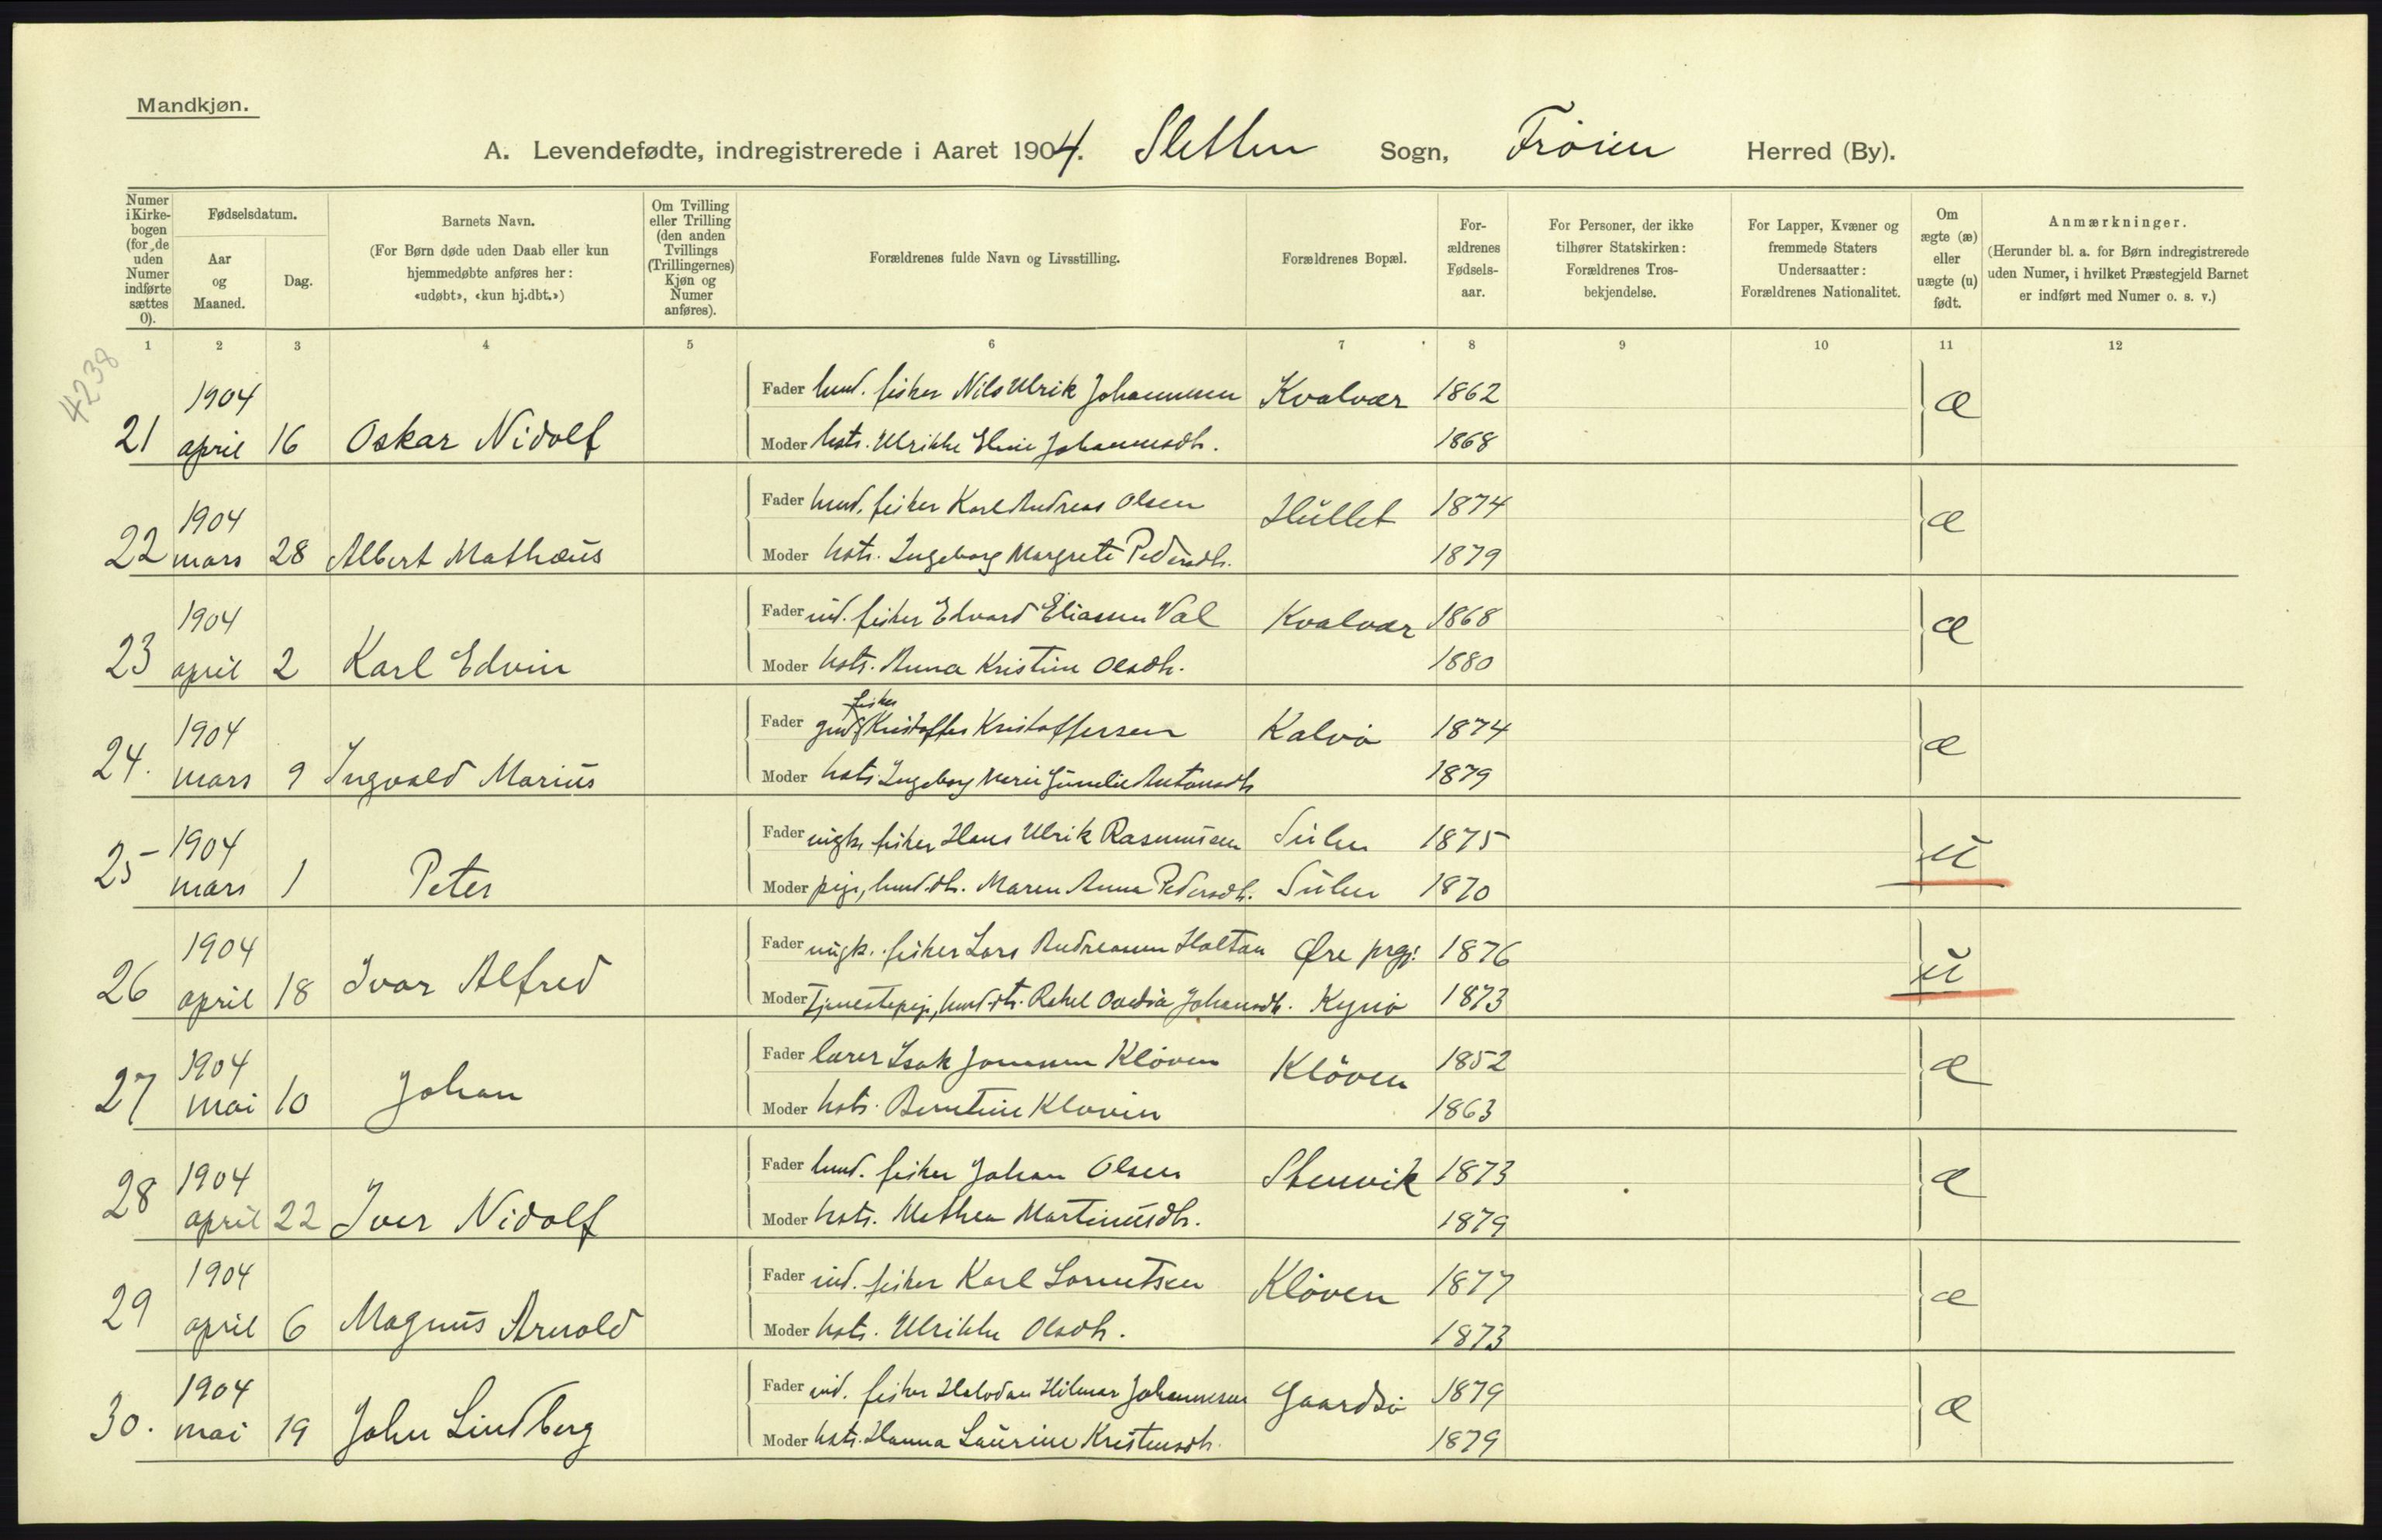 Mandkjøn.
A. Levendefødte, indregistrerede i Aaret 1904. Sletten Sogn, Fröien Herred (By).
Numer i Kirkebogen (for de uden Numer indførte sættes 0).
Fødselsdatum.
Aar og Maaned.
Dag.
Barnets Navn.
(For Børn døde uden Daab eller kun hjemmedøbte anføres her: «udøbt», «kun hj.dbt.»)
Om Tvilling eller Trilling (den anden Tvillings (Trillingernes) Kjøn og Numer anføres).
Forældrenes fulde Navn og Livsstilling.
Forældrenes Bopæl.
Forældrenes Fødselsaar.
For Personer, der ikke tilhører Statskirken: Forældrenes Trosbekjendelse.
For Lapper, Kvæner og fremmede Staters Undersaatter: Forældrenes Nationalitet.
Om ægte (æ) eller uægte (u) født.
Anmærkninger.
(Herunder bl. a. for Børn indregistrerede uden Numer, i hvilket Præstegjeld Barnet er indført med Numer o. s. v.)
1 2 3 4 5 6 7 8 9 10 11 12
4238
1904 Fader husm. fisker Nils Ulrik Johannesen Kvalvær 1862 æ
21 april 16 Oskar Nidolf Moder hstr. Ulrikke Johannesdtr. 1868
1904 Fader husm. fisker Karl Andreas Olsen Hullet 1874 æ
22 mars 28 Albert Mathæus Moder hstr. Ingeborg Margrete Pedersdtr. 1879
1904 Fader ind. fisker Edvard Eliasen Val Kvalvær 1868 æ
23 april 2 Karl Edvin Moder hstr. Anna Kristine Olsdtr. 1880
fisker
1904 Fader Kristoffer Kristoffersen Kalvö 1874 æ
24. mars 9 Ingvald Marius Moder hstr. Ingeborg Marie Antonsdtr 1879
1904 Fader ungk. fisker Hans Ulrik Rasmussen Sulen 1875 u
25 mars 1 Peter Moder pige, Maren Anna Pedersdtr. Sulen 1870
1904 Fader ungk. fisker Lars Andreasen Holtan Øre prgj. 1876 u
26 april 18 Ivar Alfred Moder Tjenestepige, Rakel Johansdtr. Kynö 1873
1904 Fader lærer Isak Klöven Klöven 1852 æ
27 mai 10 Johan Moder hstr. Berntine Klöven 1863
1904 Fader husm. fisker Johan Olsen Stenvik 1873 æ
28 april 22 Iver Nidolf Moder hstr. Mathea Martinusdtr. 1879
1904 Fader ind. fisker Karl Lorentsen Klöven 1877 æ
29 april 6 Magnus Arnold Moder hstr. Ulrikke Olsdtr. 1873
1904 Fader ind. fisker Halvdan Hilmar Johannesen Gaardsö 1879 æ
30. mai 19 John Lindberg Moder hstr. Hanna Laurine Kristensdtr. 1879